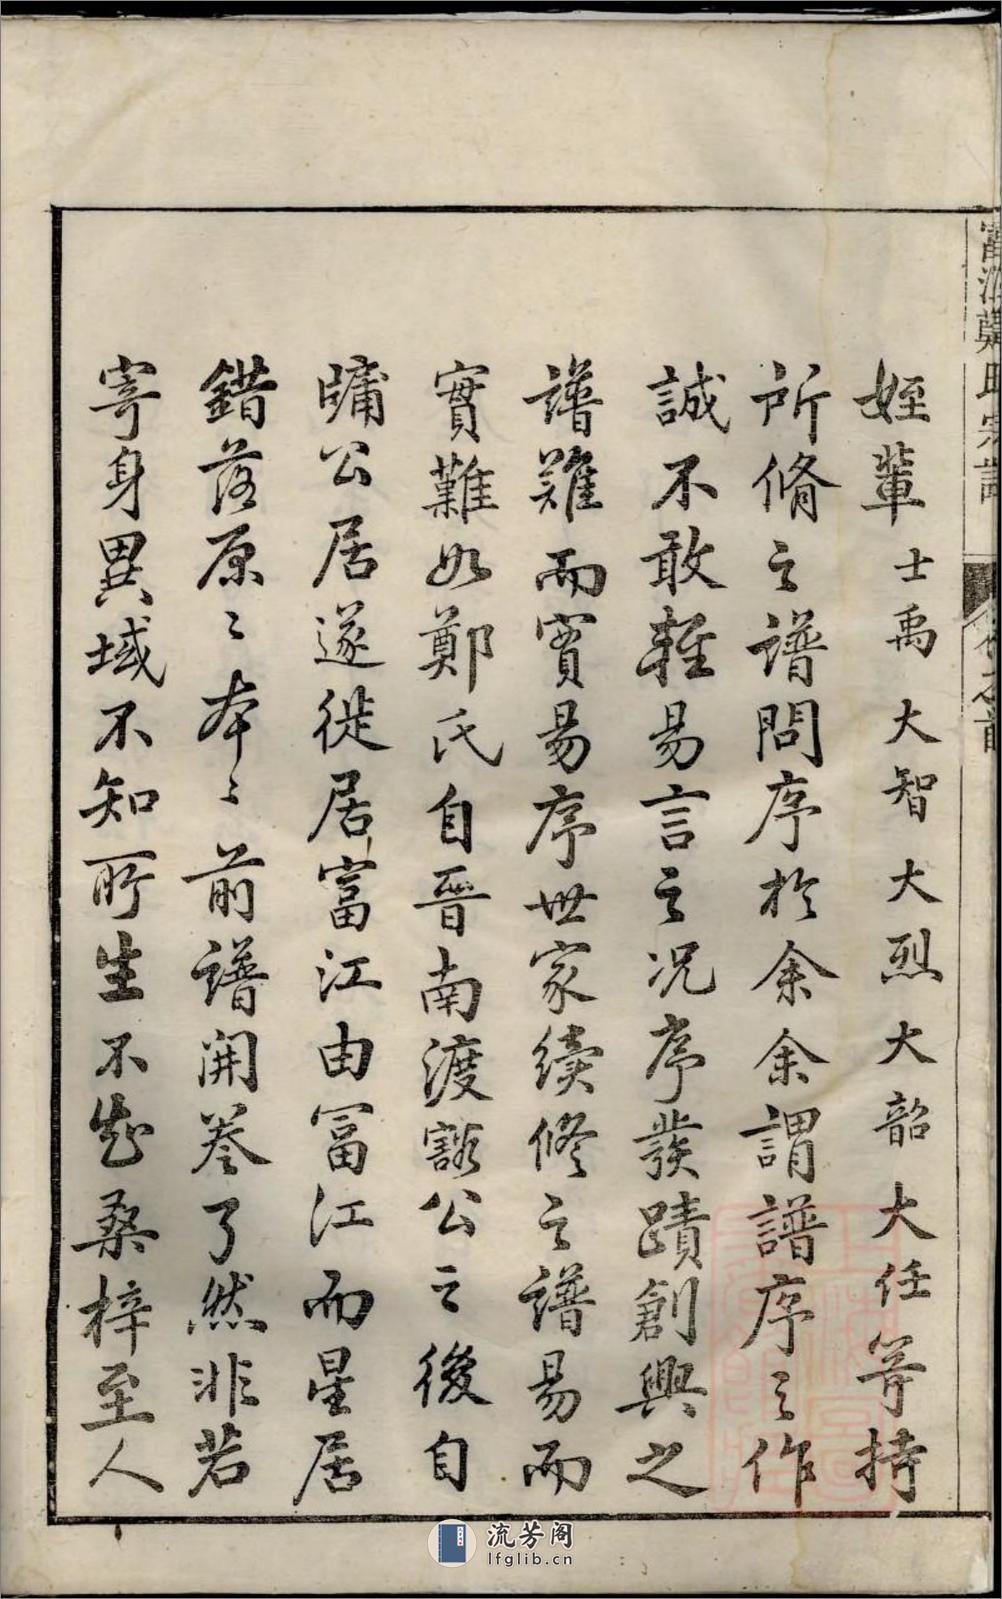 富江鄭氏宗譜 卷之首
姪輩士禹大智大烈大韶大任等持
所脩之譜問序於余余謂譜序之作
誠不敢輕易言之況序發蹟創興之
譜難而實易序世家續修之譜易而
實難如鄭氏自晉南渡谿公之後自
墉公居遂徙居富江由冨江而星居
錯落原〻本〻前譜開卷了然非若
寄身異域不知所生不忘桑梓至人
流芳阁
lfglib.cn